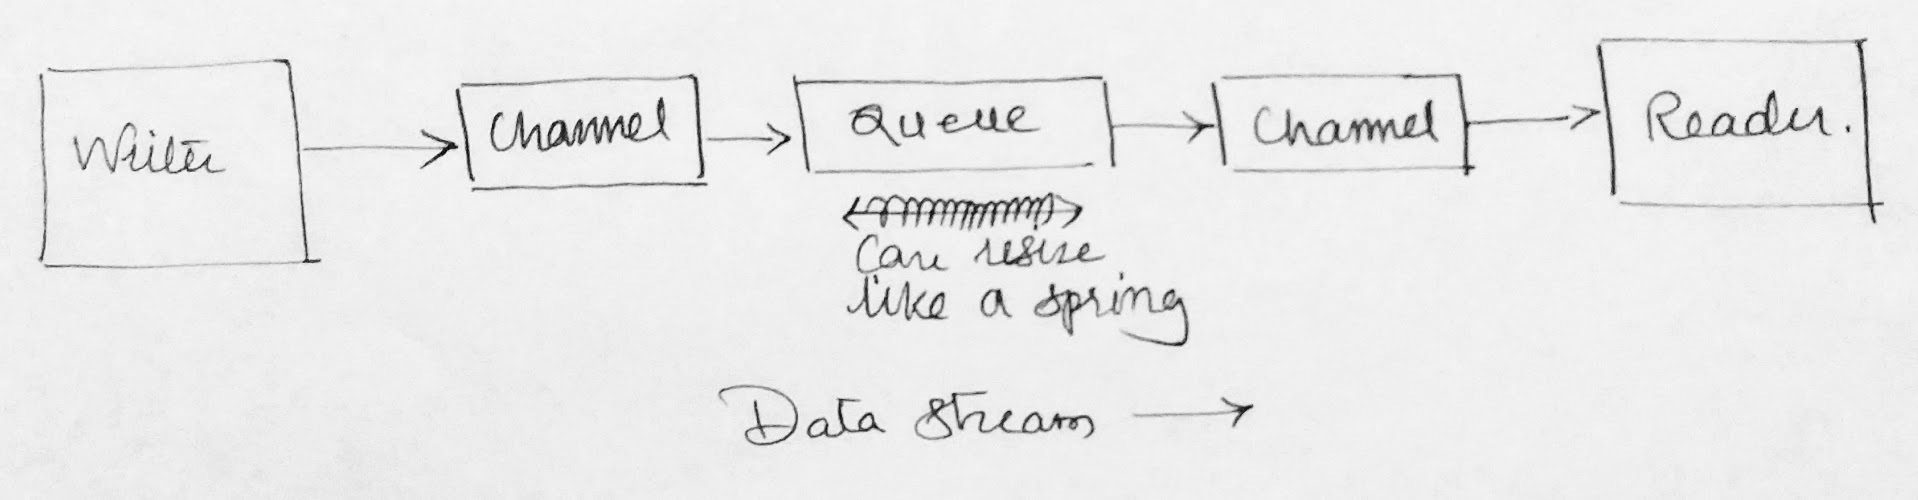 Writer
Channel
Queue
Channel
Reader.
Can resize
like a spring
Data Stream